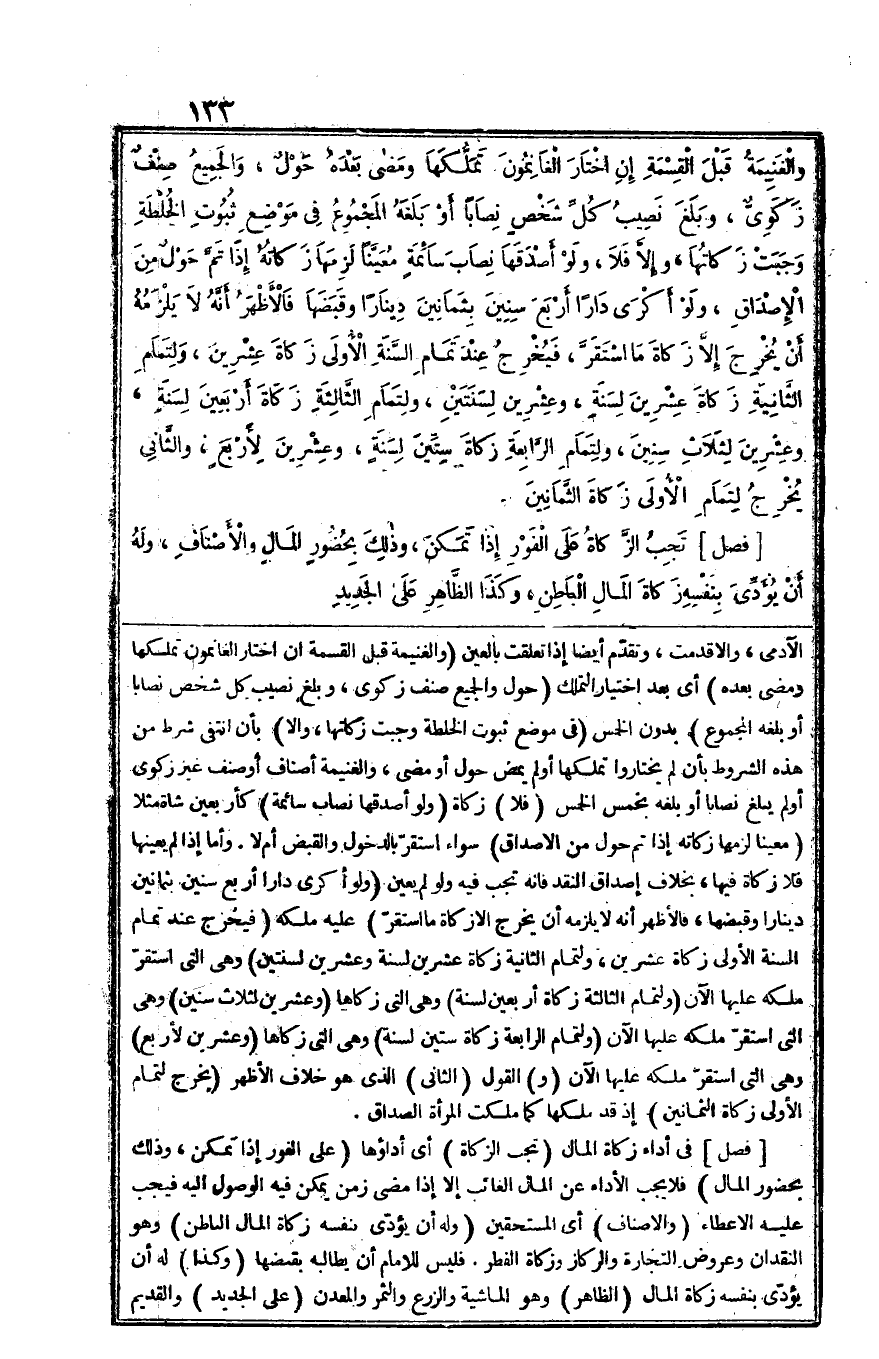 ١٣٣
والْغَنِيمَةُ قَبْلَ الْقِسْمَةِ إِنِ اخْتَارَ الْغَانِمُونَ تَمَلُّكَهَا ومَضٰى بَعْدَهُ حَوْلٌ ، وَالْجَمِيعُ صِنْفٌ
زَكَوِىٌّ ، وبَلَغَ نَصِيبُ كُلِّ شَخْصٍ نِصَابًا أَوْ بَلَغَهُ الْمَجْمُوعُ فِى مَوْضِعِ ثُبُوتِ الْخُلْطَةِ
وَجَبَتْ زَكاتُهَا ، وإِلاَّ فَلاَ ، ولَوْ أَصْدَقَهَا نِصَابَ سَائِمَةٍ مُعَيَّنًا لَزِمَهَا زَكاتُهُ إِذَا تَمَّ حَوْلٌ مِنَ
الْإِصْدَاقِ ، ولَوْ أَكْرَى دَارًا أَرْبَعَ سِنِينَ بِثَمانِينَ دِينَارًا وقَبَضَهَا فَالْأَظْهَرُ أَنَّهُ لاَ يَلْزَمُهُ
أَنْ يُخْرِجَ إِلاَّ زَكاةَ مَا اسْتَقَرَّ ، فَيُخْرِجُ عِنْدَ تَمَامِ السَّنَةِ الْأُولَى زَكاةَ عِشْرِينَ ، وَلِتَمَامِ
الثَّانِيَةِ زَكاةَ عِشْرِينَ لِسَنَةٍ ، وعِشْرِين لِسَنَتَيْنِ ، ولِتمَامِ الثَّالِثَةِ زَكَاةَ أَرْبَعِينَ لِسَنَةٍ ،
وعِشْرِينَ لِثَلَاثِ سِنِينَ ، ولِتمَامِ الرَّابِعَةِ زَكاةَ سِتِّينَ لِسَنَةٍ ، وعِشْرِينَ لِأَرْبَعٍ ، والثَّانِى
يُخْرِجُ لِتمَامِ الْأُولَى زَكاةَ الثَّمَانِينَ .
[ فصل ] تَجِبُ الزَّكاةُ عَلَى الْفَوْرِ إِذَا تَمَكنَ ، وذٰلِكَ بِحُضُورِ الْمَالِ والْأَصْنَافِ ، ولَهُ
أَنْ يُؤَدِّىَ بِنَفْسِهِ زَكاةَ الْمَالِ الْبَاطِنِ ، وكَذَا الظَّاهِرِ عَلَى الْجَدِيدِ
الآدمى ، والاقدمت ، وتقدّم أيضا إذا تعلقت بالعين (والغنيمة قبل القسمة ان اختار الغانمون تملكها
ومضى بعده) أى بعد اختيار التملك (حول والجميع صنف زكوى ، وبلغ نصيب كل شخص نصابا
أو بلغه المجموع ) بدون الخمس (فى موضع ثبوت الخلطة وجبت زكاتها ، والا) بأن انتفى شرط من
هذه الشروط بأن لم يختاروا تملكها أولم يمض حول أو مضى ، والغنيمة أصناف أوصنف غير زكوى
أولم يبلغ نصابا أو بلغه بخمس الخمس (فلا) زكاة (ولو أصدقها نصاب سائمة) كأربعين شاة مثلا
(معينا لزمها زكاته إذا تم حول من الاصداق) سواء استقرّ بالدخول والقبض أم لا . وأما إذا لم يعينها
فلا زكاة فيها ، بخلاف إصداق النقد فانه تجب فيه ولو لم يعين (ولو أكرى دارا أربع سنين بثمانين
دينارا وقبضها ، فالأظهر أنه لا يلزمه أن يخرج الا زكاة ما استقرّ ) عليه ملكه (فيخرج عند تمام
السنة الأولى زكاة عشرين ، ولتمام الثانية زكاة عشرين لسنة وعشرين لسنتين) وهى التى استقرّ
ملكه عليها الآن (ولتمام الثالثة زكاة أربعين لسنة) وهى التى زكاها (وعشرين لثلاث سنين) وهى
التى استقرّ ملكه عليها الآن (ولتمام الرابعة زكاة ستين لسنة) وهى التى زكاها (وعشرين لأربع)
وهى التى استقرّ ملكه عليها الآن (و) القول (الثانى) الذى هو خلاف الأظهر (يخرج لتمام
الأولى زكاة الثمانين) إذ قد ملكها كما ملكت المرأة الصداق .
[ فصل ] فى أداء زكاة المال (تجب الزكاة) أى أداؤها (على الفور إذا تمكن ، وذلك
بحضور المال) فلايجب الأداء عن المال الغائب إلا إذا مضى زمن يمكن فيه الوصول اليه فيجب
عليه الاعطاء (والاصناف) أى المستحقين (وله أن يؤدّى بنفسه زكاة المال الباطن) وهو
النقدان وعروض التجارة والركاز وزكاة الفطر . فليس للامام أن يطالبه بقبضها (وكذا) له أن
يؤدّى بنفسه زكاة المال (الظاهر) وهو الماشية والزرع والثمر والمعدن (على الجديد) والقديم